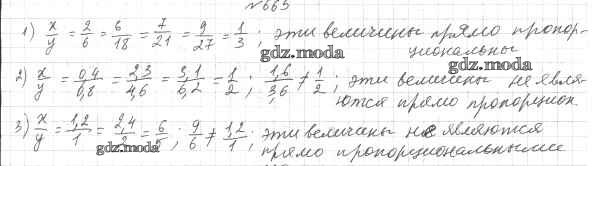 № 665
1) x/y = 2/6 = 6/18 = 7/21 = 9/27 = 1/3 ; эти величины прямо пропор-
циональны
gdz.moda
gdz.moda
2) x/y = 0,4/0,8 = 2,3/4,6 = 3,1/6,2 = 1/2 ; 1,6/3,6 ≠ 1/2 ; эти величины не явля-
ются прямо пропорцион.
3) x/y = 1,2/1 = 2,4/2 = 6/5 ; 9/6 ≠ 1,2/1 ; эти величины не являются
прямо пропорциональными
gdz.moda